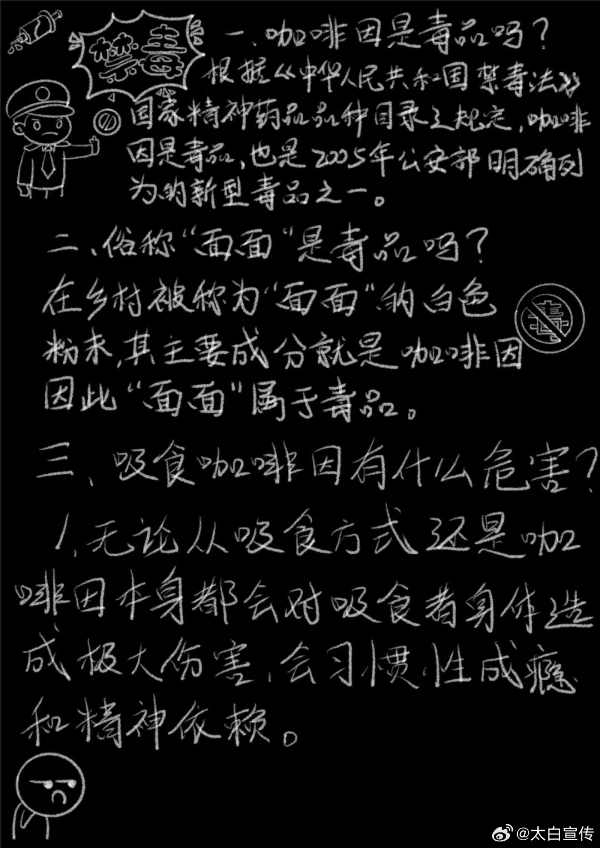 禁毒
一、咖啡因是毒品吗？
根据《中华人民共和国禁毒法》
国家精神药品品种目录之规定，咖啡
因是毒品，也是2005年公安部明确列
为的新型毒品之一。
二、俗称“面面”是毒品吗？
在乡村被称为“面面”的白色
粉末，其主要成分就是咖啡因
因此“面面”属于毒品。
毒
三、吸食咖啡因有什么危害？
1、无论从吸食方式还是咖
啡因本身都会对吸食者身体造
成极大伤害，会习惯性成瘾
和精神依赖。
@太白宣传